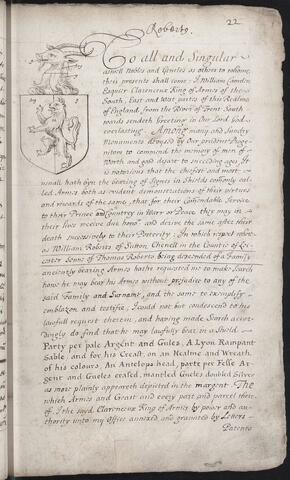 22
Roberts.
To all and Singular
aswell Nobles and Gentles as others to whome
these presents shall come: I William Camden
Esquier Clarenceux King of Armes of the
South, East and West partes of this Realme
of England, from the River of Trent South-
wards sendeth Greeting in Our Lord God
everlasting. Among many and Sundry
Monuments devysed by Our prudent Proge-
nitors to commend the memory of men of
Worth and good desart to succeeding ages, It
is notorious that the cheifest and most
usuall hath byn the bearing of Signes in Shields commonly cal-
led Armes both as evident demonstrations of their vertues
and rewards of the same, that for their Commendable Service
to their Prince and Countrey in Warr or Peace they may in
their lives receive due honor and derive the same after their
death successively to their Posterity: In which respect where-
as William Roberts of Sutton Chenell in the Countie of Lei-
cester Sonne of Thomas Roberts being descended of a Family
anciently bearing Armes hathe requested me to make Search
howe he may bear his Armes without prejudice to any of the
said Family and Surname, and the same to exemplify
emblazon and testifie, I could not but condescend to his
lawfull request therein, and having made Search accor-
dingly do find that he may lawfully bear in a Shield
Party per pale Argent and Gules, A Lyon Rampant
Sable, and for his Creast, on an Healme and Wreath
of his colours, An Antelops head, party per Fesse Ar-
gent and Gueles erased, mantled Gueles doubled Silver
as more plainly appeareth depicted in the margent. The
which Armes and Creast and every part and parcel there-
of I the said Clarenceux King of Armes by power and au-
thority unto my Office annexed and graunted by Letters
Patents